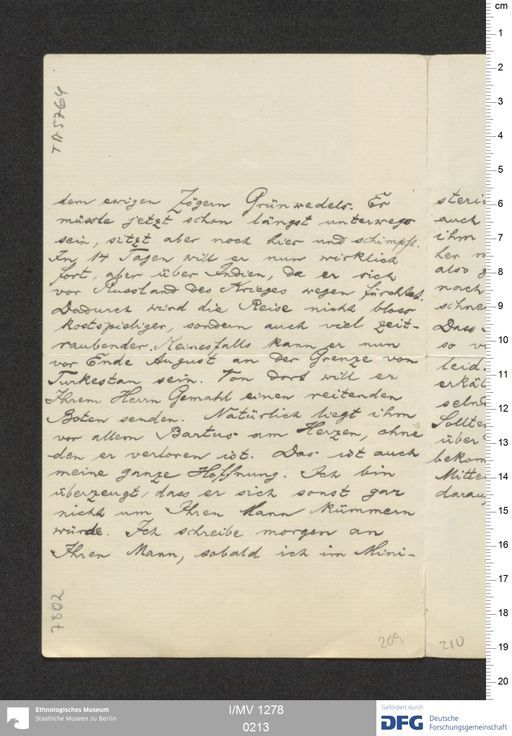 TA 5764
dem ewigen Zögern Grünwedels. Er
müsste jetzt schon längst unterwegs
sein, sitzt aber noch hier und schimpft.
In 14 Tagen will er nun wirklich
fort, aber über Indien, da er sich
vor Russland des Krieges wegen fürchtet.
Dadurch wird die Reise nicht bloss
kostspieliger, sondern auch viel zeit-
raubender. Keinesfalls kann er nun
vor Ende August an der Grenze von
Turkestan sein. Von dort will er
Ihrem Herrn Gemahl einen reitenden
Boten senden. Natürlich liegt ihm
vor allem Bartus am Herzen, ohne
den er verloren ist. Das ist auch
meine ganze Hoffnung. Ich bin
überzeugt, dass er sich sonst gar
nicht um Ihren Mann kümmern
würde. Ich schreibe morgen an
Ihren Mann, sobald ich im Mini-
7802
209
steri
auch
ihm
her
also
nach
schne
Dass
so v
leid.
erkäl
selnd
Sollte
über
bekom
Mitte
darau
210
cm
1
2
3
4
5
6
7
8
9
10
11
12
13
14
15
16
17
18
19
20
Ethnologisches Museum
Staatliche Museen zu Berlin
I/MV 1278
0213
Gefördert durch
DFG Deutsche
Forschungsgemeinschaft